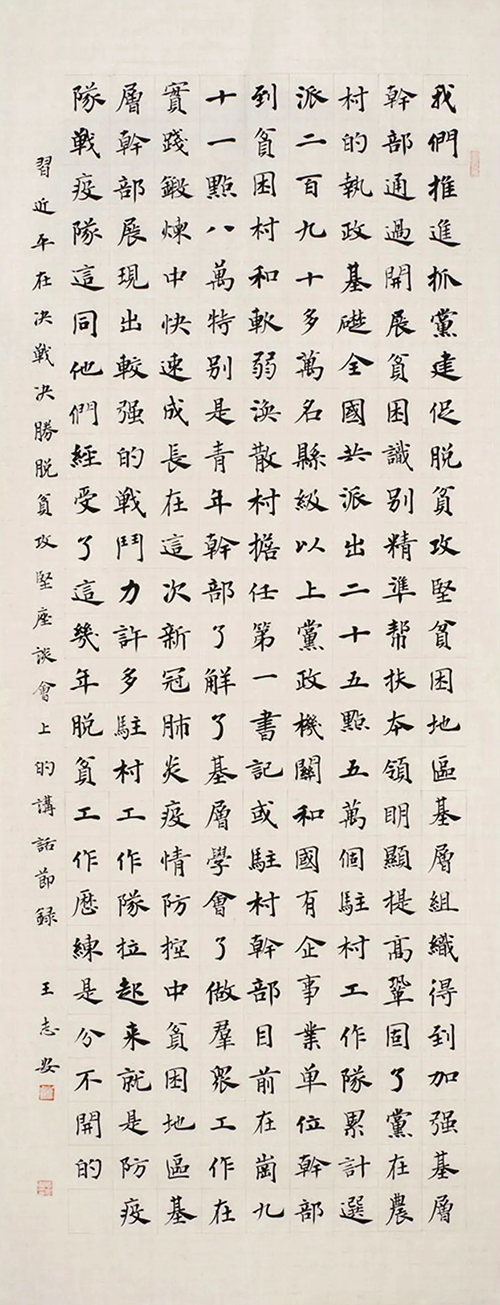 我們推進抓黨建促脫貧攻堅貧困地區基層組織得到加强基層
幹部通過開展貧困識別精準幫扶本領明顯提高鞏固了黨在農
村的執政基礎全國共派出二十五點五萬個駐村工作隊累計選
派二百九十多萬名縣級以上黨政機關和國有企事業單位幹部
到貧困村和軟弱渙散村擔任第一書記或駐村幹部目前在崗九
十一點八萬特別是青年幹部了解了基層學會了做羣眾工作在
實踐鍛煉中快速成長在這次新冠肺炎疫情防控中貧困地區基
層幹部展現出較强的戰鬥力許多駐村工作隊拉起來就是防疫
隊戰疫隊這同他們經受了這幾年脫貧工作歷練是分不開的
習近平在決戰決勝脫貧攻堅座談會上的講話節録 王志安